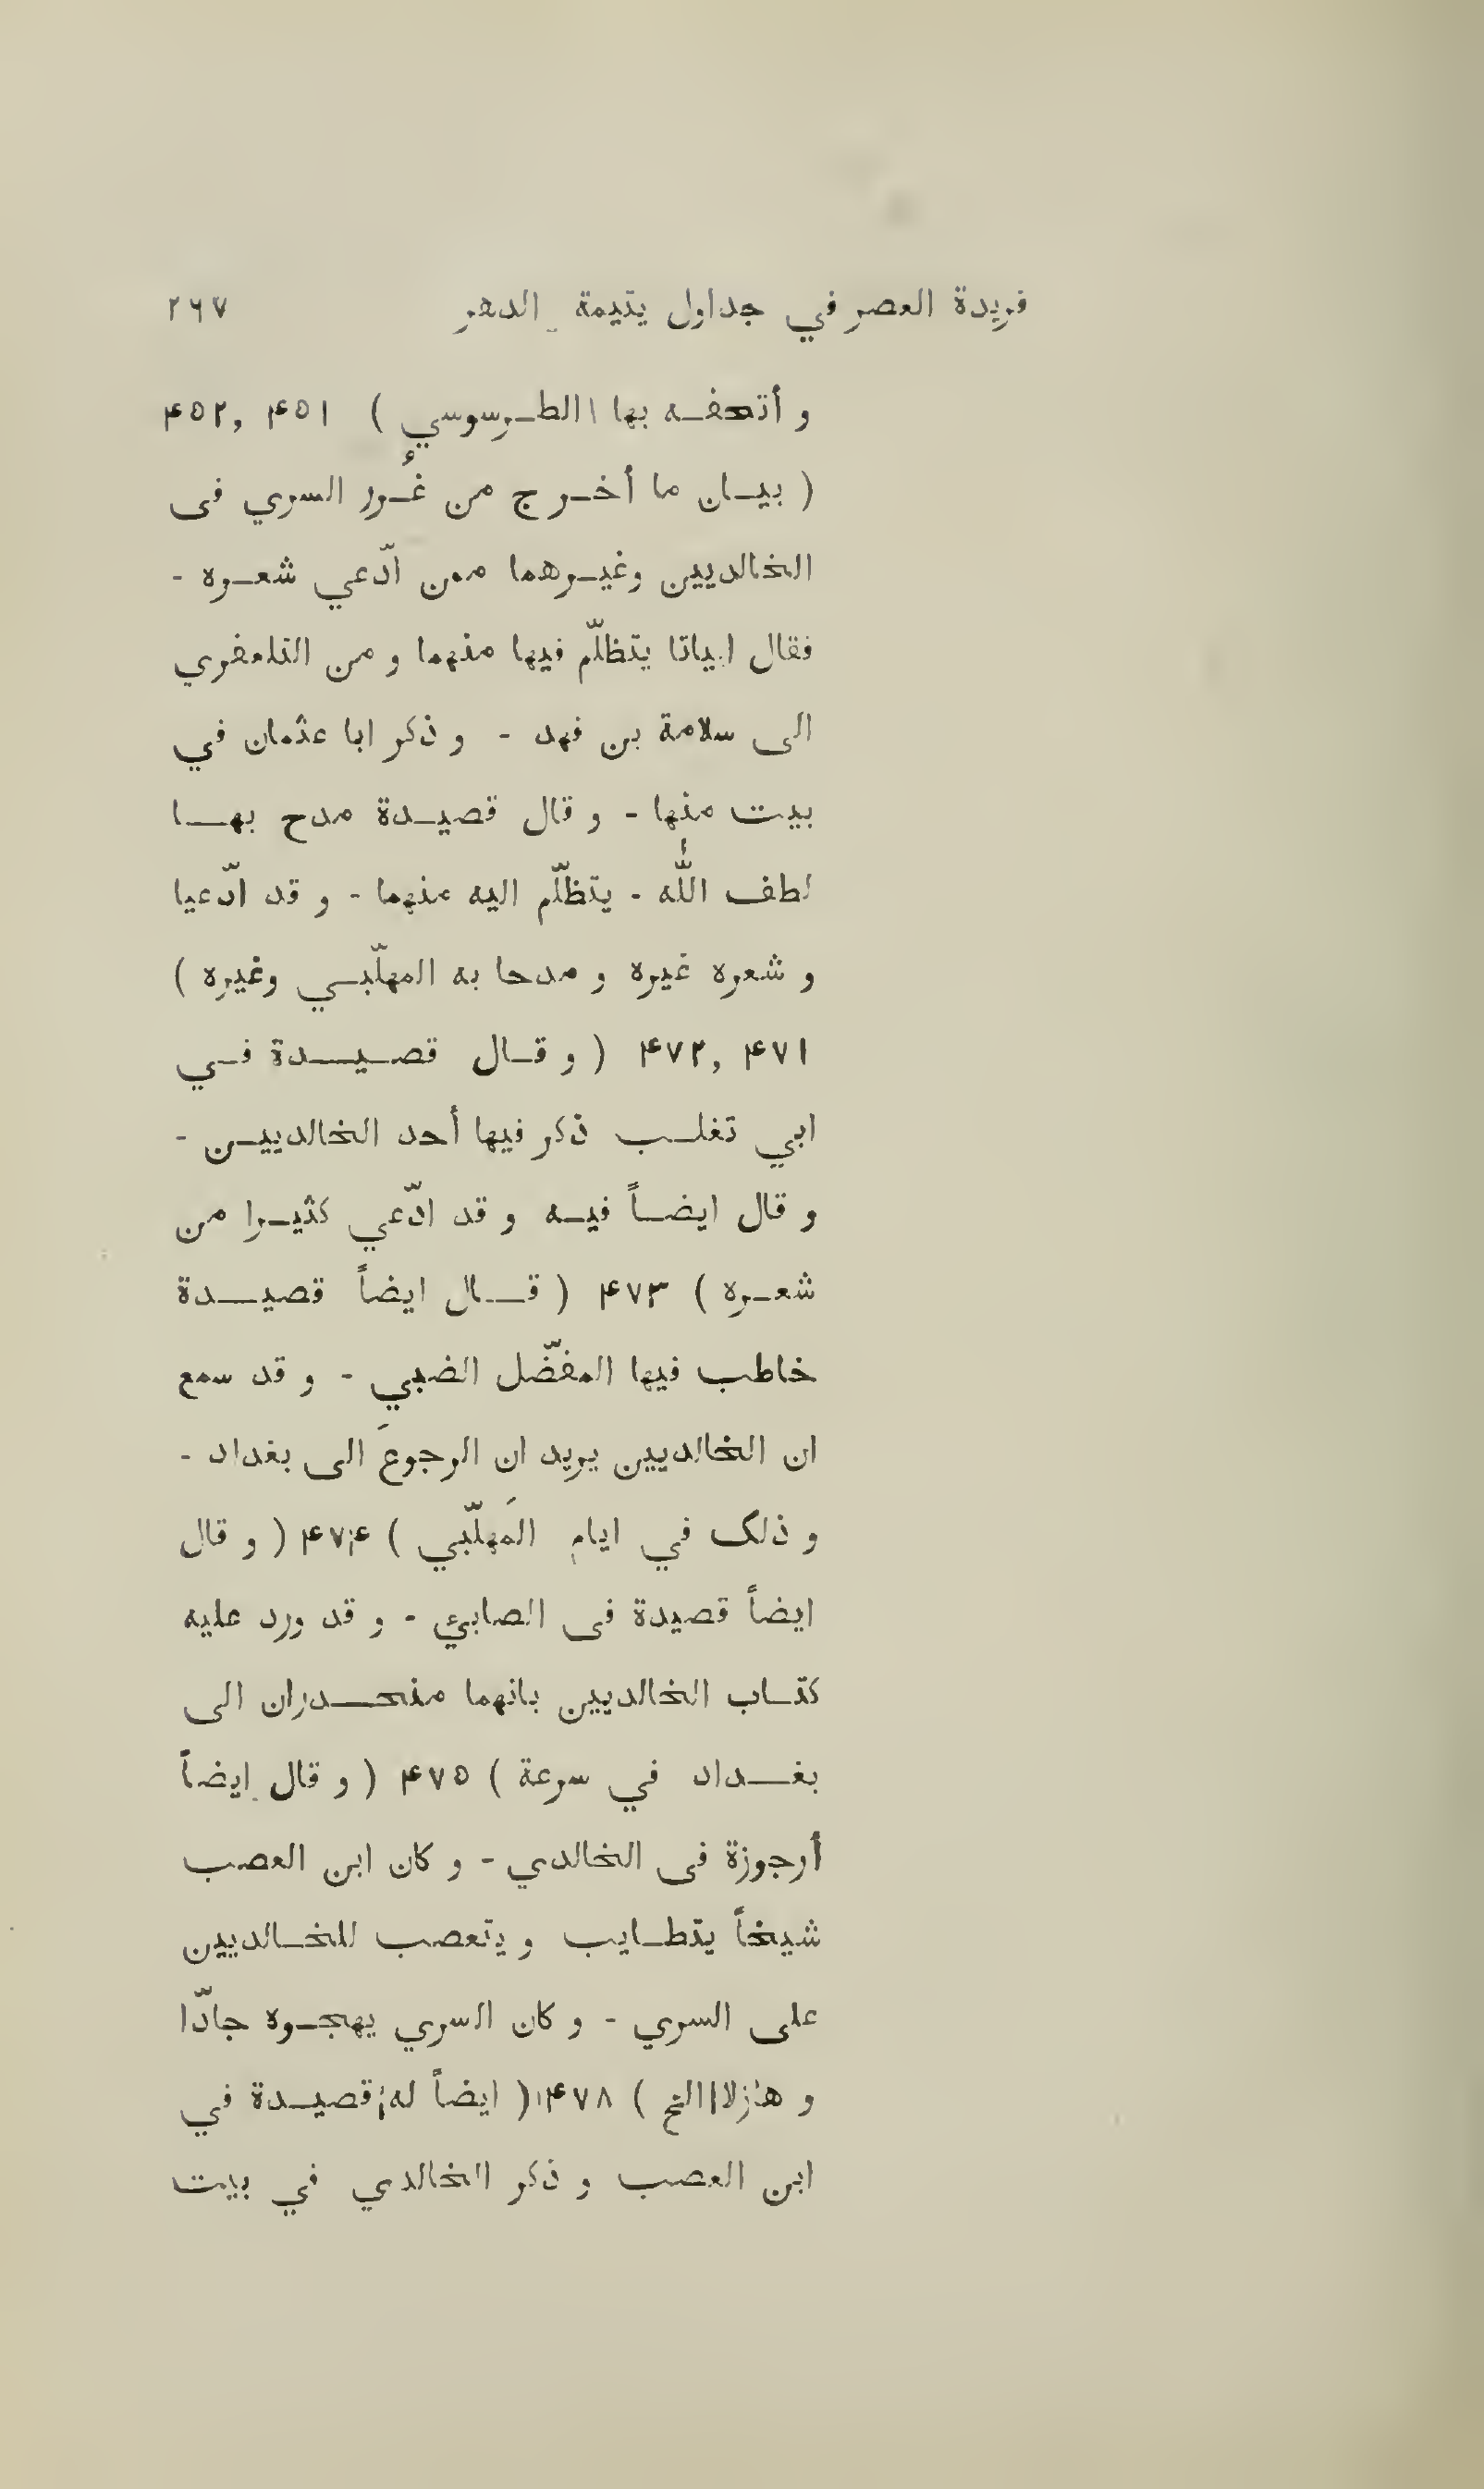 فريدة العصر في جداول يتيمة الدهر ٢٦٧
و أتحفـه بها الطـرسوسي ) ۴٥١ ,۴٥٢
( بيـان ما أخـرج من غُـرر السري فى
الخالديين وغيـرهما ممن ادّعي شعـره -
فقال ابياتا يتظلّم فيها منهما و من التلعفري
الى سلامة بن فهد - و ذكر ابا عثمان في
بيت منها - و قال قصيـدة مدح بهـا
لطف اللّٰه - يتظلّم اليه منهما - و قد ادّعيا
و شعره غيره و مدحا به المهلّبـي وغيره )
۴٧١ ,۴٧٢ ( و قـال قصـيـدة فـي
ابي تغلـب ذكر فيها أحد الخالدييـن -
و قال ايضـاً فيـه و قد ادّعي كثيـرا من
شعـره ) ۴٧٣ ( قـال ايضاً قصيـدة
خاطب فيها المفضّل الضبي - و قد سمع
ان الخالديين يريد ان الرجوعَ الى بغداد -
و ذلك في ايام المَهلّبي ) ۴٧۴ ( و قال
ايضاً قصيدة فى الصابئ - و قد ورد عليه
كتـاب الخالديين بانهما منحـدران الى
بغـداد في سرعة ) ۴٧٥ ( و قال ايضاً
أرجوزة فى الخالدي - و كان ابن العصب
شيخاً يتطـايب و يتعصب للخـالديين
على السري - و كان السري يهجـوه جادّا
و هازلا الخ ) ۴٧٨ ( ايضاً له قصيـدة في
ابن العصب و ذكر الخالدي في بيت